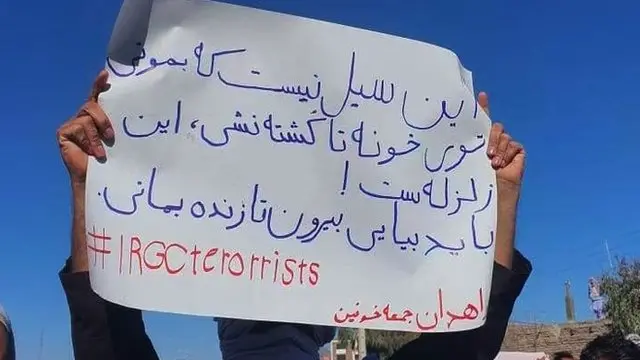 این سیل نیست که بمونی
توی خونه تا کشته نشی، این
زلزله ست!
باید بیایی بیرون تا زنده بمانی.
#IRGCterorrists
اهدان جمعه خونین